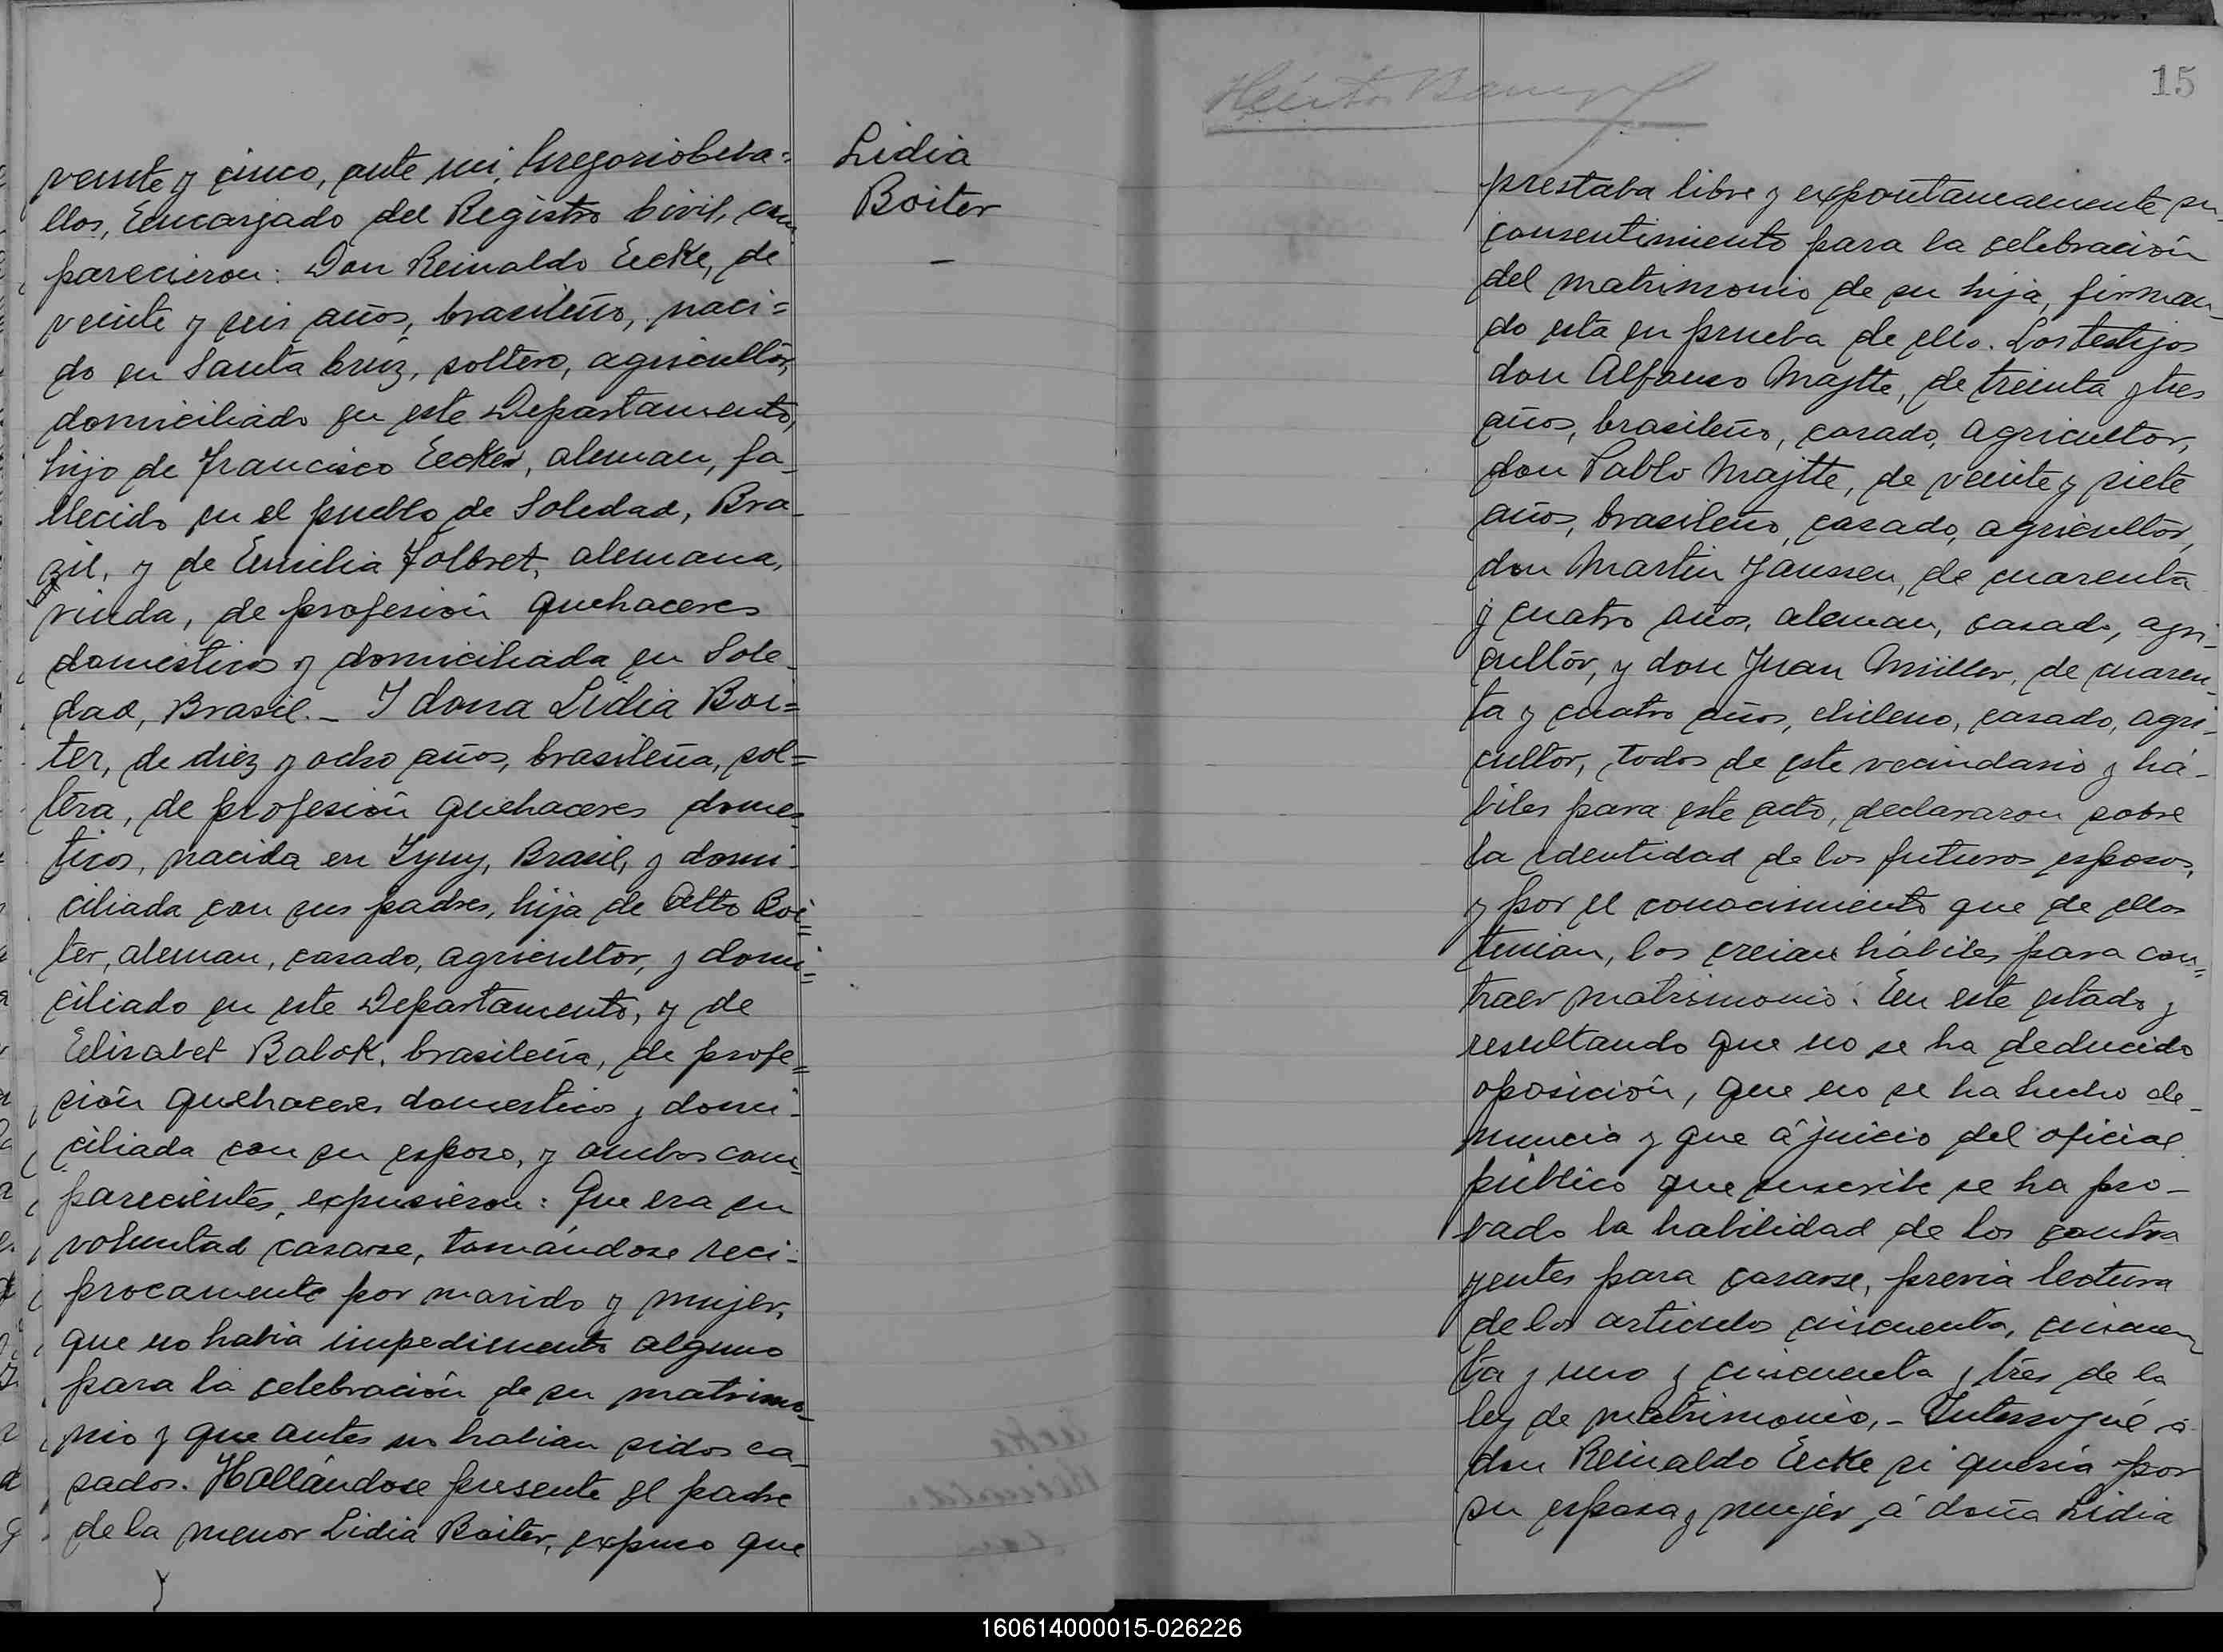 veinte y cinco, ante mi, Gregorio Ceba=
llos, Encargado del Registro Civil, com
parecieron: Don Reinaldo Ecke, de
veinte y seis años, brasileño, naci=
do en Santa Cruz, soltero, agricultor,
domiciliado en este Departamento,
hijo de Francisco Ecke, aleman, fa-
llecido en el pueblo de Soledad, Bra-
zil, y de Emilia Folbret, alemana,
viuda, de profesión quehaceres
domésticos y domiciliada en Sole-
dad, Brasil. - I dona Lidia Boi=
ter, de diez y ocho años, brasileña, sol=
tera, de profesión quehaceres domes-
ticos, nacida en Yyuy, Brasil, y domi-
ciliada con sus padres, hija de Otto Boi=
ter, aleman, casado, agricultor, y domi=
ciliado en este Departamento, y de
Elisabet Babok, brasileña, de profe=
ción quehaceres domesticos y domi-
ciliada con su esposo, y ambos com-
parecientes, expusieron: Que era su
voluntad casarse, tomándose reci-
procamente por marido y mujer,
que no habia impedimento alguno
para la celebración de su matrimo-
nio y que antes no habian sidos ca-
sados. Hallándose presente el padre
de la menor Lidia Boiter, expuso que
Lidia
Boiter
-
15
prestaba libre y expontaneamente su
consentimiento para la celebración
del matrimonio de su hija, firman-
do esta en prueba de ello. Los testigos
don Alfonso Majtte, de treinta y tres
años, brasileño, casado, agricultor,
don Pablo Majtte, de veinte y siete
años, brasileño, casado, agricultor,
don Martin Janssen, de cuarenta
y cuatro años, aleman, casado, agri-
cultor, y don Juan Müller, de cuaren-
ta y cuatro años, chileno, casado, agri-
cultor, todos de este vecindario y há-
biles para este acto, declararon sobre
la identidad de los futuros esposos,
y por el conocimiento que de ellos
tenian, los creian hábiles para con=
traer matrimonio. En este estado y
resultando que no se ha deducido
oposición, que no se ha hecho de-
nuncia y que á juicio del oficial
público que suscribe se ha pro-
vado la habilidad de los contra
yentes para casarse, previa lectura
de los articulos cincuenta, cincuen
ta y uno y cincuenta y tres de la
ley de matrimonio, - Interrogué a
don Reinaldo Ecke si queria por
su esposa y mujer á doña Lidia
160614000015-026226